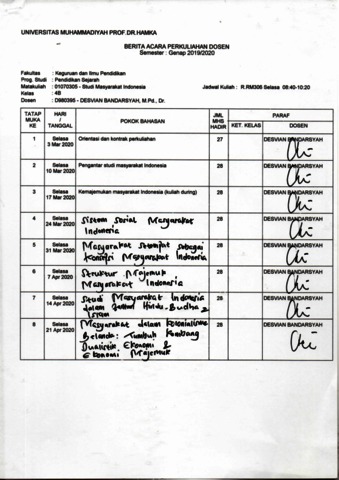 UNIVERSITAS MUHAMMADIYAH PROF.DR.HAMKA
BERITA ACARA PERKULIAHAN DOSEN
Semester : Genap 2019/2020
Fakultas : Keguruan dan Ilmu Pendidikan
Prog. Studi : Pendidikan Sejarah
Matakuliah : 01070305 - Studi Masyarakat Indonesia Jadwal Kuliah : R.RM305 Selasa 08:40-10:20
Kelas : 4B
Dosen : D980395 - DESVIAN BANDARSYAH, M.Pd., Dr.
TATAP MUKA KE HARI / TANGGAL POKOK BAHASAN JML MHS HADIR PARAF
KET. KELAS DOSEN
1 Selasa 3 Mar 2020 Orientasi dan kontrak perkuliahan 27 DESVIAN BANDARSYAH
2 Selasa 10 Mar 2020 Pengantar studi masyarakat Indonesia 28 DESVIAN BANDARSYAH
3 Selasa 17 Mar 2020 Kemajemukan masyarakat Indonesia (kuliah during) 28 DESVIAN BANDARSYAH
4 Selasa 24 Mar 2020 Sistem Sosial Masyarakat 28 DESVIAN BANDARSYAH
Indonesia
5 Selasa 31 Mar 2020 Masyarakat setempat sebagai 28 DESVIAN BANDARSYAH
Masyarakat Indonesia
6 Selasa 7 Apr 2020 Struktur Majemuk 28 DESVIAN BANDARSYAH
Masyarakat Indonesia
7 Selasa 14 Apr 2020 Studi Masyarakat Indonesia 28 DESVIAN BANDARSYAH
dalam Hindu-Budha &
Islam
8 Selasa 21 Apr 2020 Masyarakat dalam kolonialisme 28 DESVIAN BANDARSYAH
Belanda: Tumbuh Kembang
Dualistik Ekonomi &
Ekonomi Majemuk